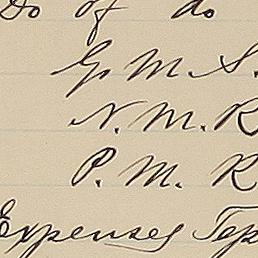 Do of do
G. M. S.
N. M. R
P. M. R
Expenses Tep